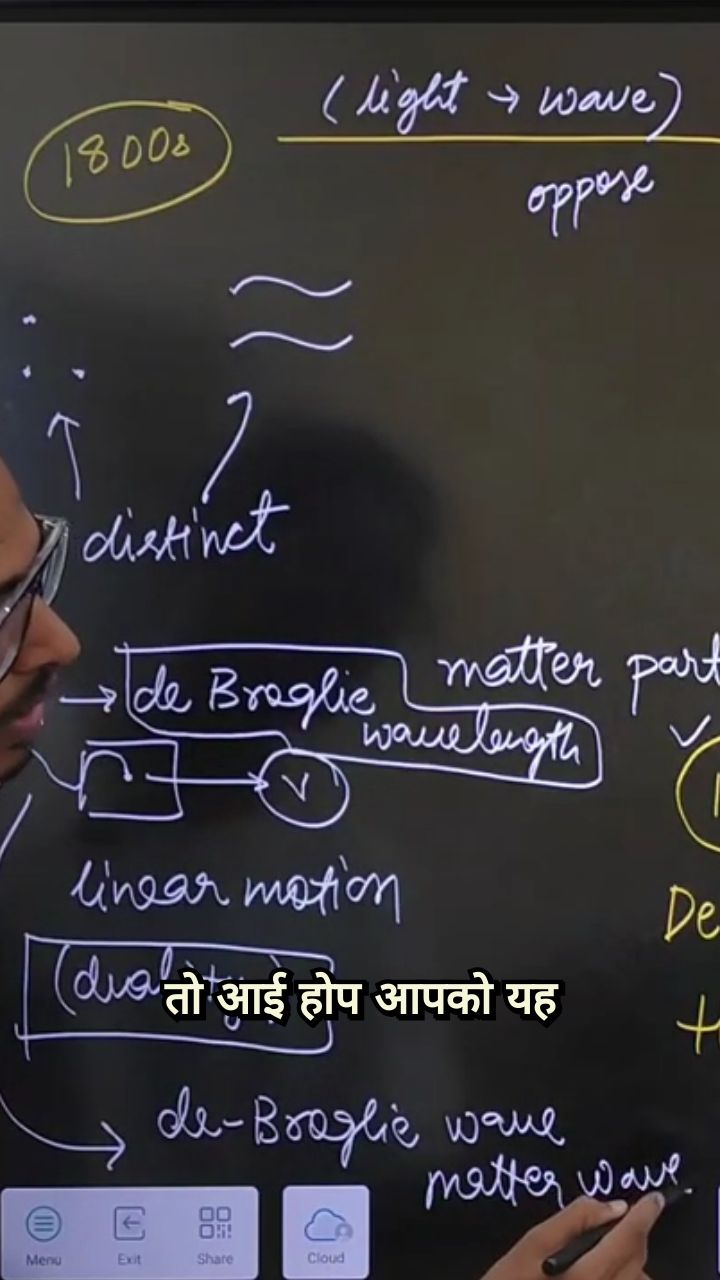 (light → wave)
1800s
oppose
distinct
→ de Broglie
wavelength
matter part
V
linear motion
De
तो आई होप आपको यह
de-Broglie wave
matter wave
Menu Exit Share Cloud